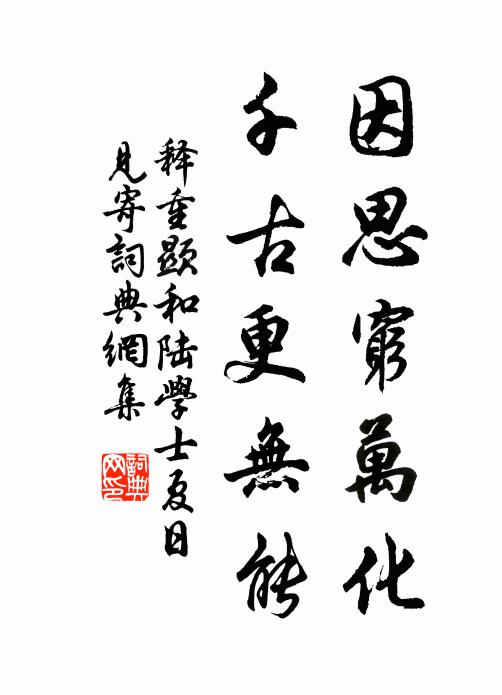 因思窮萬化
千古更無能
释重顯和陆學士夏日
見寄詞典網集
詞典網印